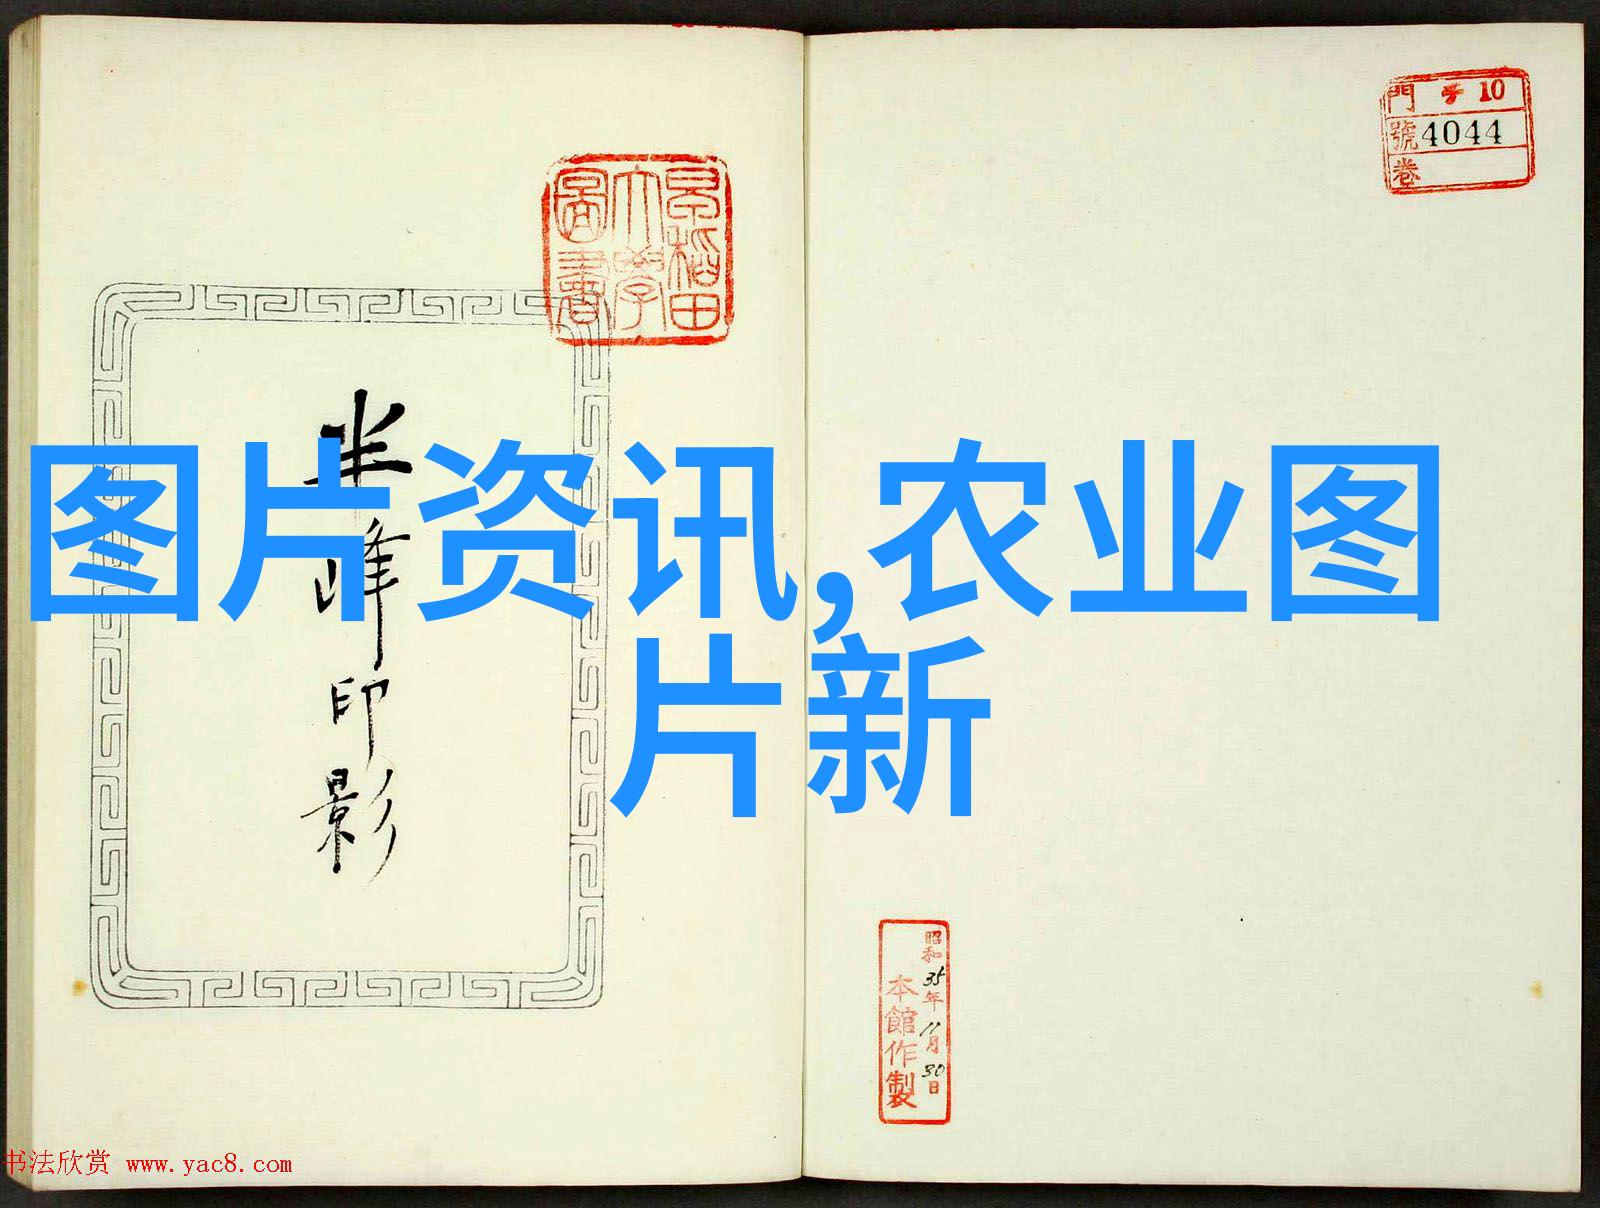 門 チ 10
號 4044
卷
早稻田
大學
圖書
半峰印影
图片资讯,农业图
片新
昭和35年11月30日
本館作製
书法欣赏 www.yac8.com